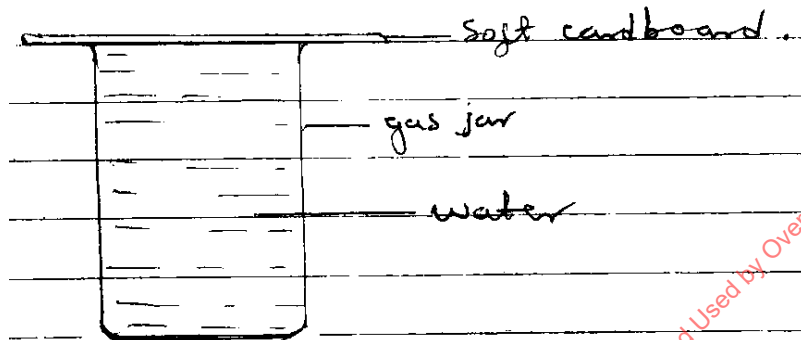 Soft cardboard.
gas jar
water
d Used by Over